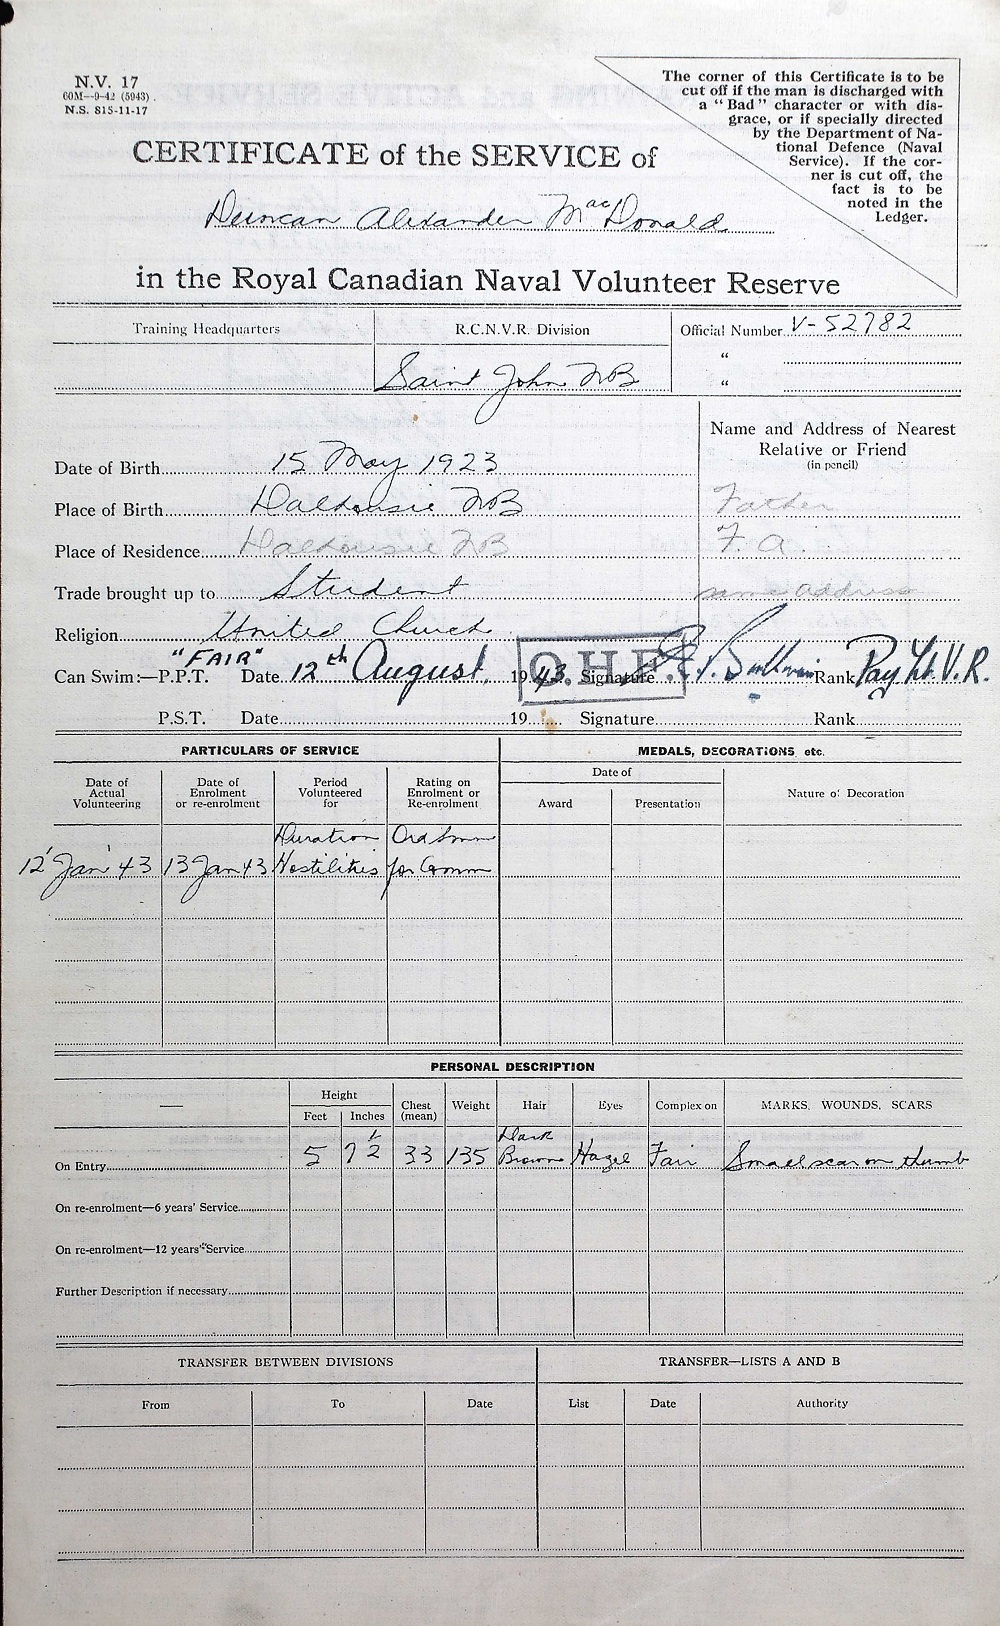 N.V. 17
60M—9-42 (5943).
N.S. 815-11-17
The corner of this Certificate is to be
cut off if the man is discharged with
a "Bad" character or with dis-
grace, or if specially directed
by the Department of Na-
tional Defence (Naval
Service). If the cor-
ner is cut off, the
fact is to be
noted in the
Ledger.
CERTIFICATE of the SERVICE of
Duncan Alexander MacDonald
in the Royal Canadian Naval Volunteer Reserve
Training Headquarters
R.C.N.V.R. Division
Saint John NB
Official Number V-52782
"
"
Name and Address of Nearest
Relative or Friend
(in pencil)
Father
F. A.
same address
Date of Birth 15 May 1923
Place of Birth Dalhousie NB
Place of Residence Dalhousie NB
Trade brought up to Student
Religion United Church
"FAIR"
Can Swim:—P.P.T. Date 12th August, 1943. Signature Rank Pay Lt. V.R.
O.H.F.
P.S.T. Date 19 Signature Rank
PARTICULARS OF SERVICE
MEDALS, DECORATIONS, etc.
Date of
Actual
Volunteering
Date of
Enrolment
or re-enrolment
Period
Volunteered
for
Rating on
Enrolment or
Re-enrolment
Date of
Award
Presentation
Nature of Decoration
Duration Ord Smn
12 Jan 43 13 Jan 43 Hostilities for Comm
PERSONAL DESCRIPTION
—
Height
Feet
Inches
Chest
(mean)
Weight
Hair
Eyes
Complexion
MARKS, WOUNDS, SCARS
Dark
On Entry 5 7½ 33 135 Brown Hazel Fair Small scar on thumb
On re-enrolment—6 years' Service
On re-enrolment—12 years' Service
Further Description if necessary
TRANSFER BETWEEN DIVISIONS
TRANSFER—LISTS A AND B
From
To
Date
List
Date
Authority